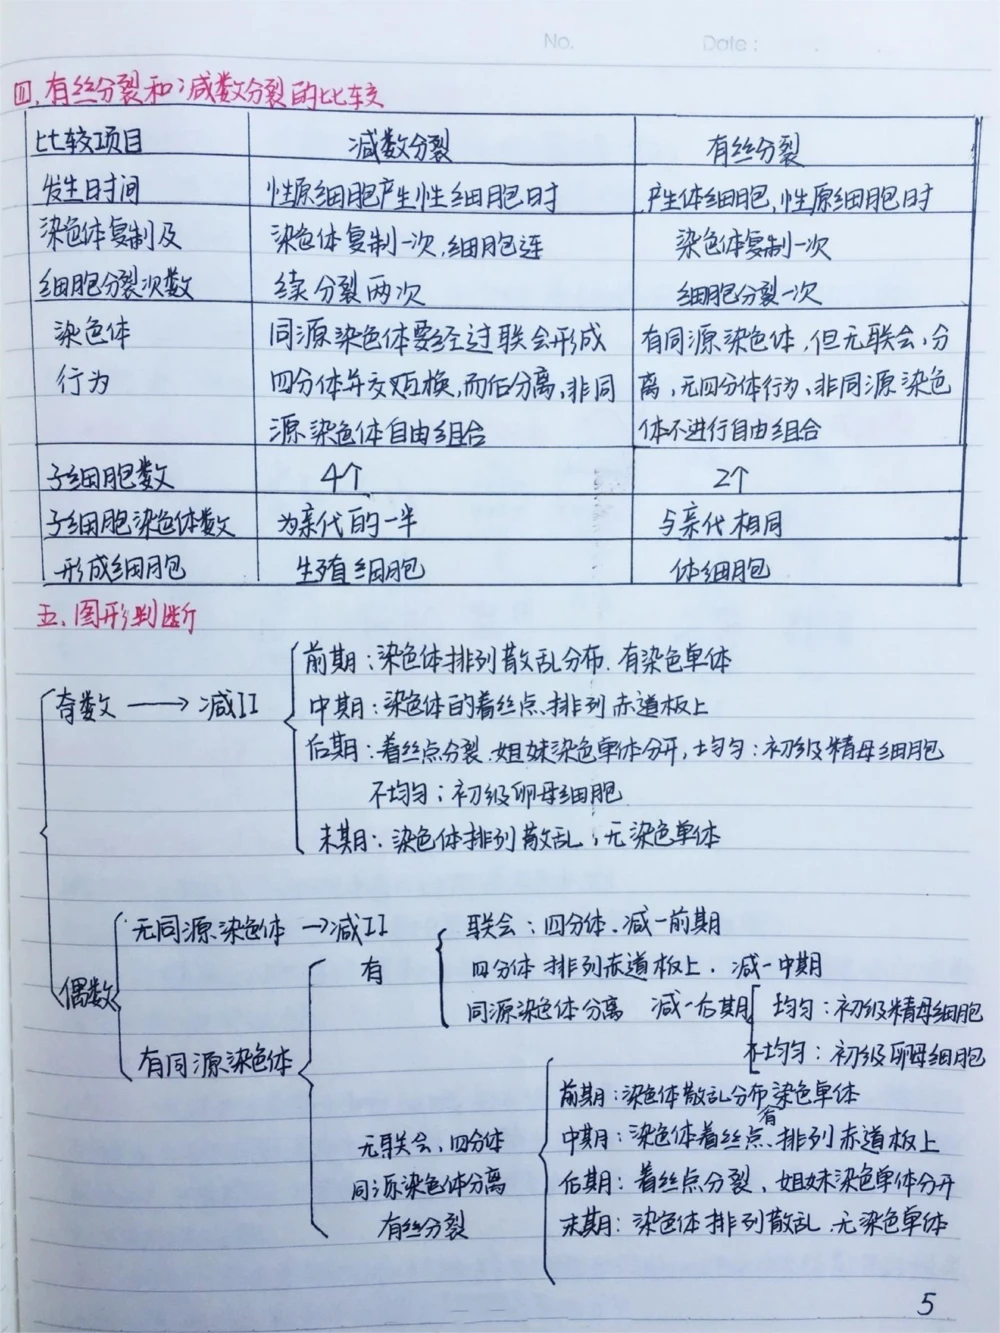 No.    Date:
四、有丝分裂和减数分裂的比较
比较项目 减数分裂 有丝分裂
发生时间 性原细胞产生性细胞时 产生体细胞,性原细胞时
染色体复制及 染色体复制一次,细胞连 染色体复制一次
细胞分裂次数 续分裂两次 细胞分裂一次
染色体 同源染色体要经过联会形成 有同源染色体,但无联会、分
行为 四分体并交叉互换,而后分离,非同 离,无四分体行为、非同源染色
源染色体自由组合 体不进行自由组合
子细胞数 4个 2个
子细胞染色体数 为亲代的一半 与亲代相同
形成细胞 生殖细胞 体细胞
五、图形判断
前期:染色体排列散乱分布.有染色单体
奇数→减II
中期:染色体的着丝点排列赤道板上
后期:着丝点分裂.姐妹染色单体分开,均匀:初级精母细胞
不均匀:初级卵母细胞
末期:染色体排列散乱,无染色单体
无同源染色体→减II
联会:四分体.减一前期
偶数
有
四分体排列赤道板上.减一中期
同源染色体分离 减一后期 均匀:初级精母细胞
不均匀:初级卵母细胞
有同源染色体
前期:染色体散乱分布有染色单体
无联会、四分体
中期:染色体着丝点排列赤道板上
同源染色体分离
后期:着丝点分裂、姐妹染色单体分开
有丝分裂
末期:染色体排列散乱 无染色单体
5